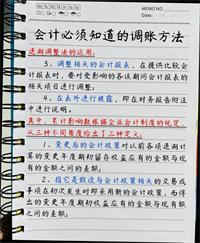 MEMO NO.
Date: / /
会计必须知道的调账方法
追溯调整法的运用:
3、调整相关的会计报表,在提供比较会
计报表时,要对受影响的各该期间会计报表的
相关项目进行调整。
4、在表外进行披露,即在财务报告附注
中进行说明。
其中,累计影响数根据企业会计制度的规定,
从三种不同角度给出了三种定义:
1、变更后的会计政策对以前各项追溯计
算的变更年度期初留存收益应有的金额与现
有的金额之间的差额;
2、指它是假设与会计政策相关的交易或
事项在初次发生时即采用新的会计政策,而得
出的变更年度期初收益应有的金额与现有额
之间的差额;